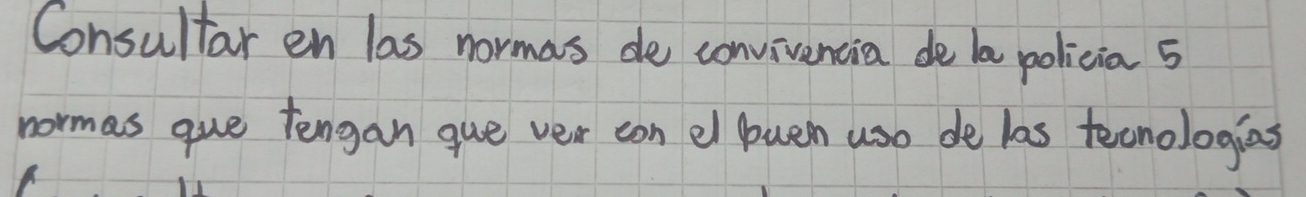 Consultar en las normas de convivencia de la policia 5
normas que tengan que ver con el buen uso de las tecnologías